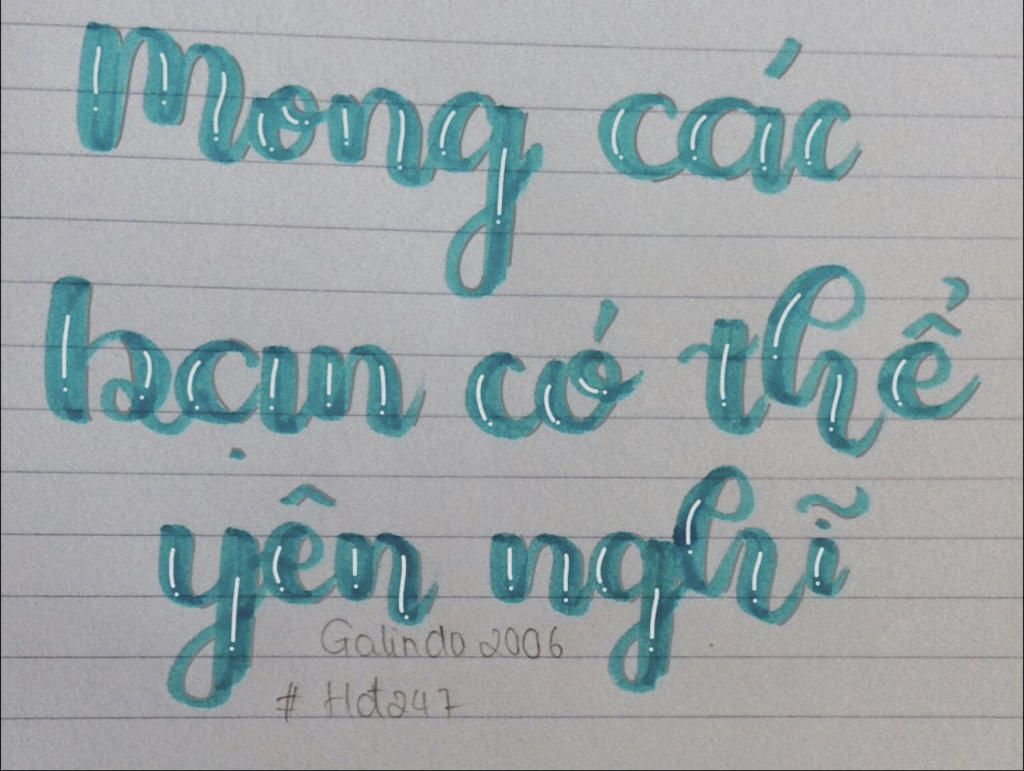 Mong các
bạn có thể
yên nghĩ
Galindo 2006
# Hd247